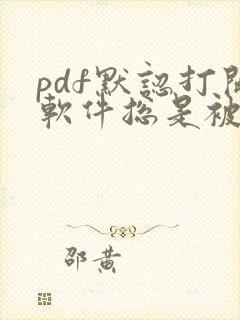 pdf默認打開
軟件總是被
邵黄